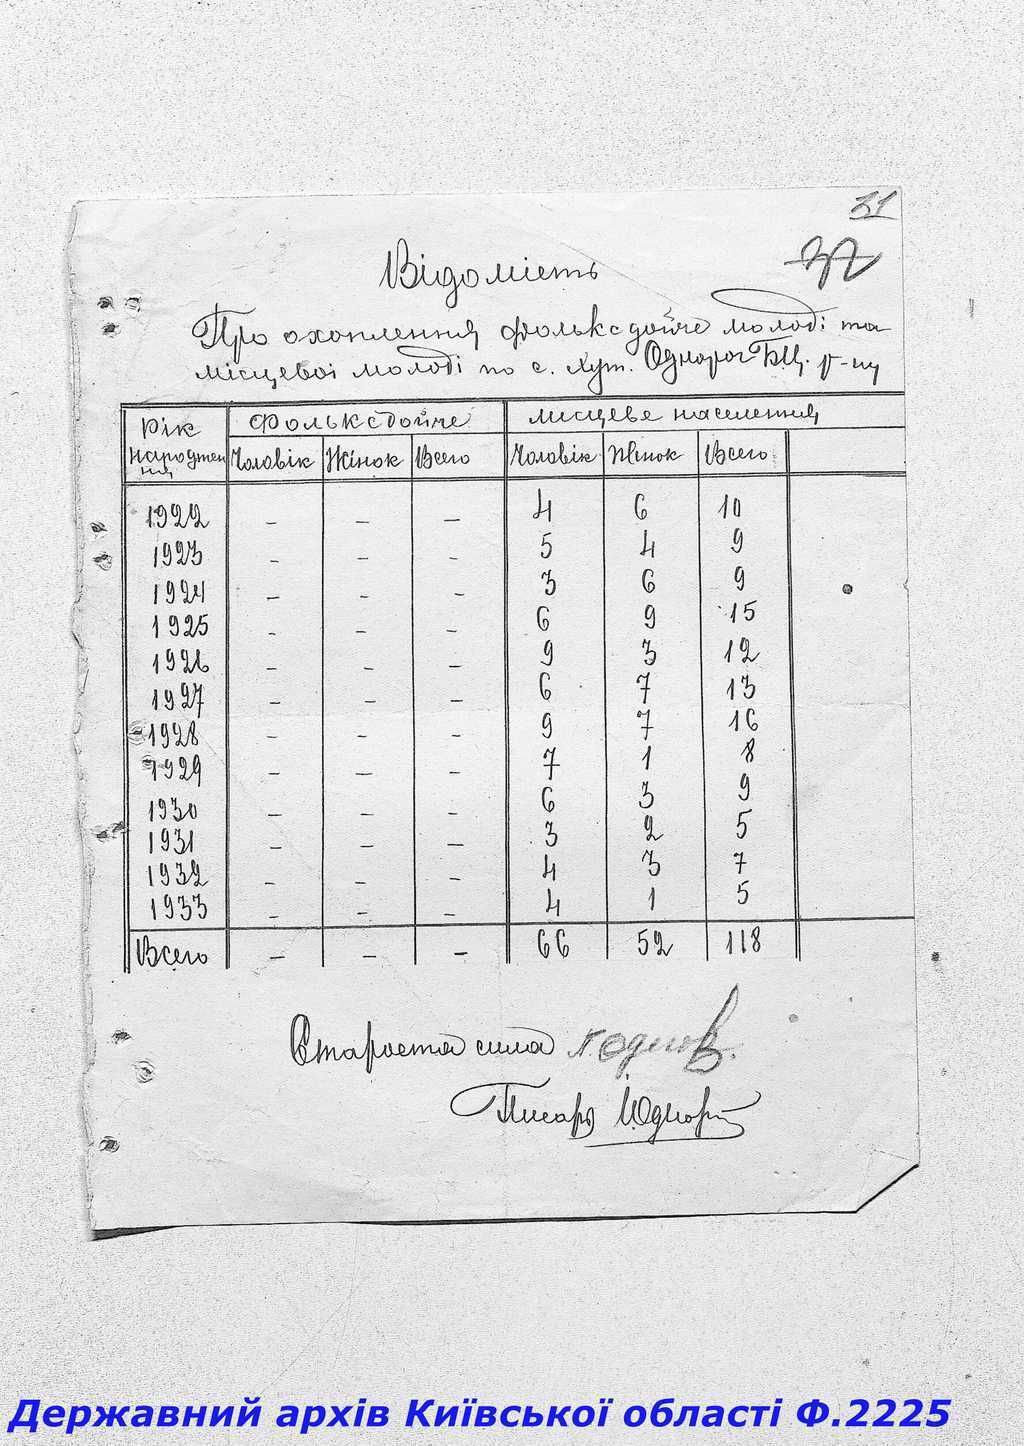 31
37
Відомість
Про охоплення фольксдойче молоді та
місцевоі молоді по с. хут. Однорог БЦ. р-ну
Рік народження Фольксдойче місцеве населення
Чоловік Жінок Всего Чоловік Жінок Всего
1922 – – – 4 6 10
1923 – – – 5 4 9
1924 – – – 3 6 9
1925 – – – 6 9 15
1926 – – – 9 3 12
1927 – – – 6 7 13
1928 – – – 9 7 16
1929 – – – 7 1 8
1930 – – – 6 3 9
1931 – – – 3 2 5
1932 – – – 4 3 7
1933 – – – 4 1 5
Всего – – – 66 52 118
Староста села
Писарь
Державний архів Київської області Ф.2225